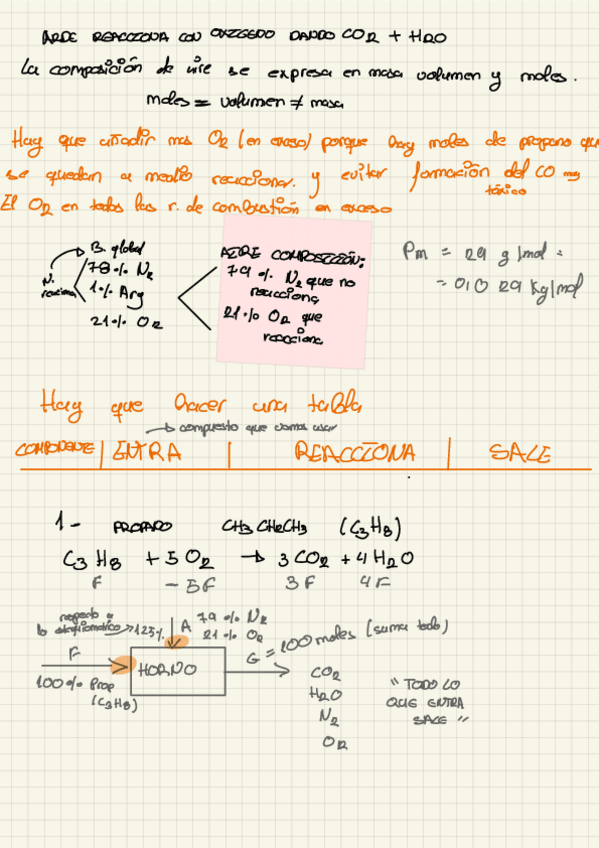 ARDE REACCIONA CON OXIGENO DANDO CO2 + H2O
La composición de aire se expresa en masa volumen y moles.
moles = volumen ≠ masa
Hay que añadir mas O2 (en exceso) porque hay moles de propano que
se quedan a medio reaccionar. y evitar formación del CO muy
tóxico
El O2 en todas las r. de combustión en exceso
B. global
78% N2
1% Arg
21% O2
N. reacciona
AIRE COMPOSICIÓN:
79% N2 que no
reacciona
21% O2 que
reacciona
Pm = 29 g/mol =
= 0,029 kg/mol
Hay que hacer una tabla
compuesto que vamos usar
COMPONENTE | ENTRA | REACCIONA | SALE
1- PROPANO CH3CH2CH3 (C3H8)
C3H8 + 5O2 → 3CO2 + 4H2O
F - 5F 3F 4F
respecto a
lo estequiométrico → 125%
A 79% N2
21% O2
F
100% Prop
(C3H8)
HORNO
G = 100 moles (suma todo)
CO2
H2O
N2
O2
"TODO LO
QUE ENTRA
SALE"